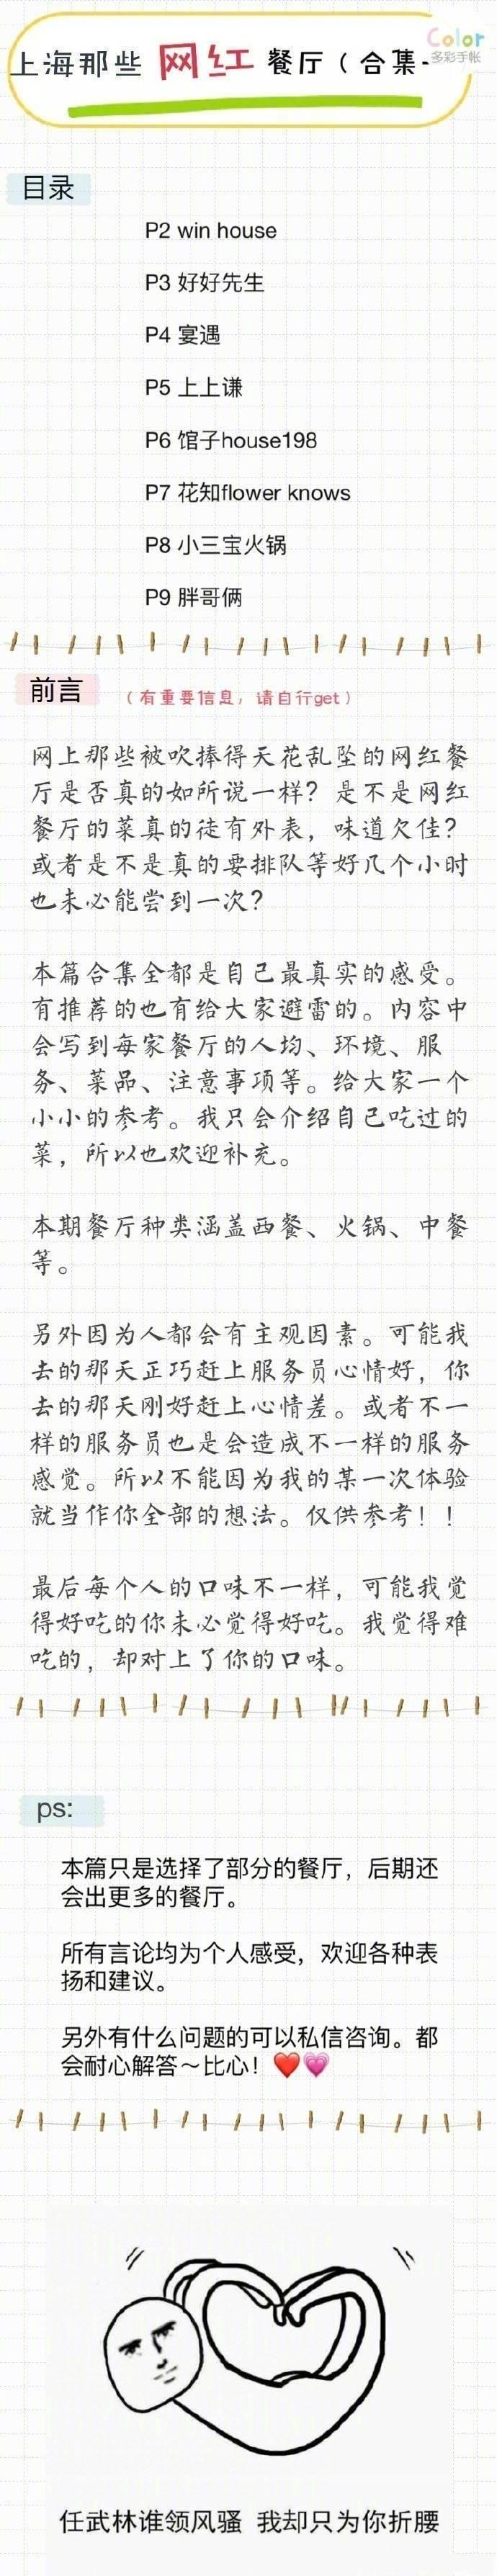 Color
多彩手帐
上海那些 网红 餐厅（合集-
目录
P2 win house
P3 好好先生
P4 宴遇
P5 上上谦
P6 馆子house198
P7 花知flower knows
P8 小三宝火锅
P9 胖哥俩
前言 （有重要信息，请自行get）
网上那些被吹捧得天花乱坠的网红餐
厅是否真的如所说一样？是不是网红
餐厅的菜真的徒有外表，味道欠佳？
或者是不是真的要排队等好几个小时
也未必能尝到一次？
本篇合集全都是自己最真实的感受。
有推荐的也有给大家避雷的。内容中
会写到每家餐厅的人均、环境、服
务、菜品、注意事项等。给大家一个
小小的参考。我只会介绍自己吃过的
菜，所以也欢迎补充。
本期餐厅种类涵盖西餐、火锅、中餐
等。
另外因为人都会有主观因素。可能我
去的那天正巧赶上服务员心情好，你
去的那天刚好赶上心情差。或者不一
样的服务员也是会造成不一样的服务
感觉。所以不能因为我的某一次体验
就当作你全部的想法。仅供参考！！
最后每个人的口味不一样，可能我觉
得好吃的你未必觉得好吃。我觉得难
吃的，却对上了你的口味。
ps:
本篇只是选择了部分的餐厅，后期还
会出更多的餐厅。
所有言论均为个人感受，欢迎各种表
扬和建议。
另外有什么问题的可以私信咨询。都
会耐心解答～比心！❤️💗
任武林谁领风骚 我却只为你折腰